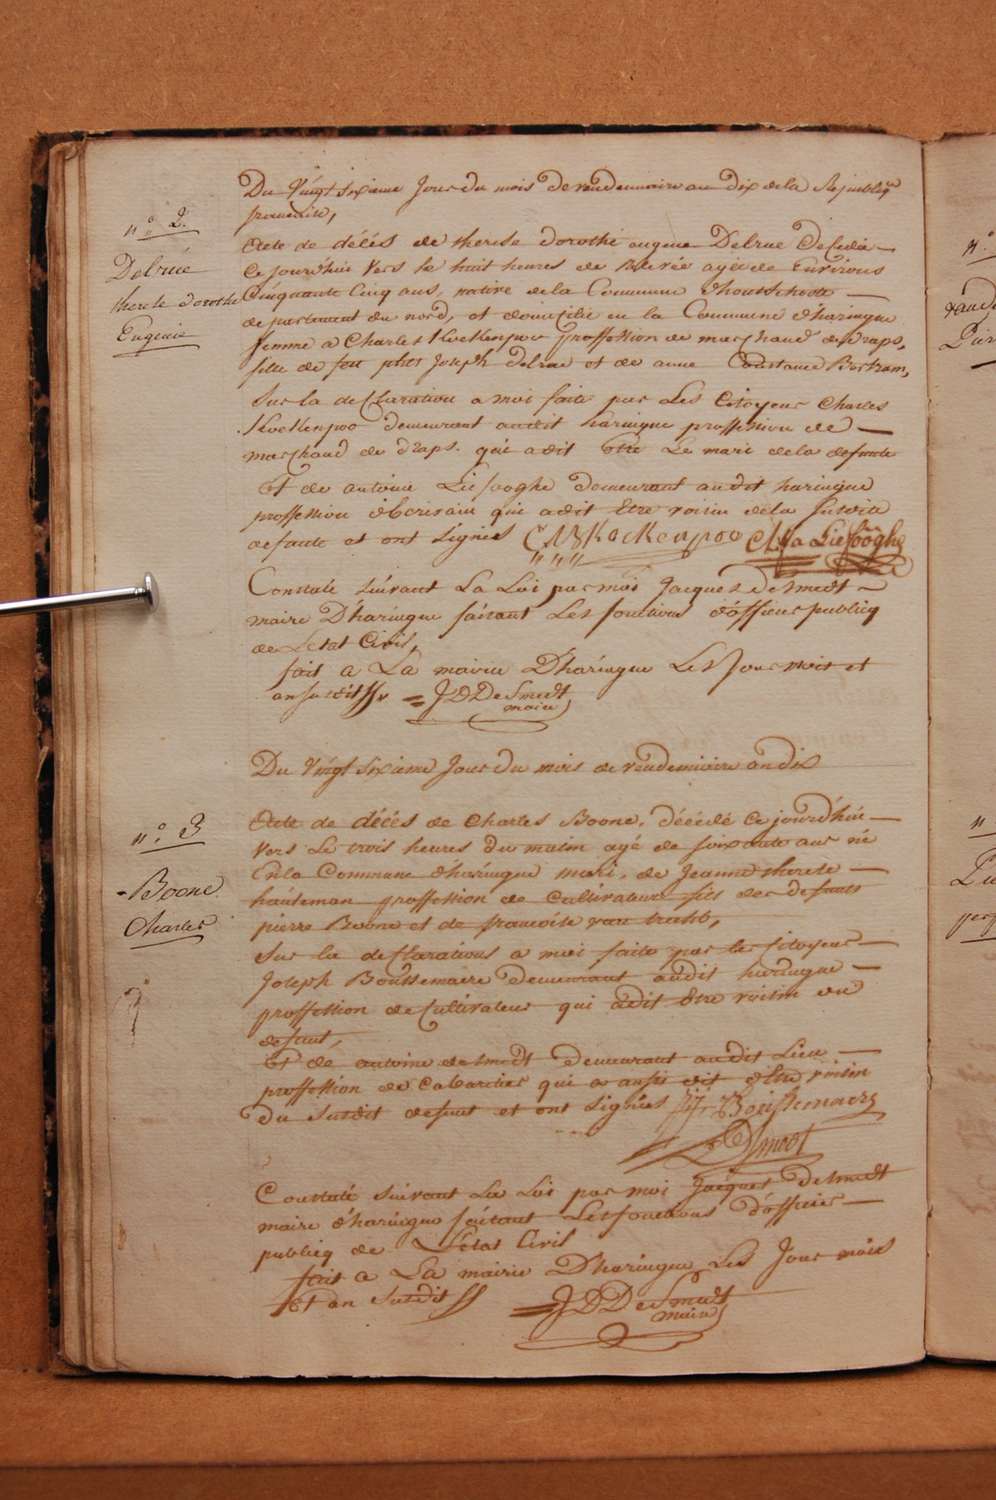 n.° 2.
Delrúe
therese dorothé
Eugenie
Du Vingt sixieme Jour du mois De vendemiaire an dix de la Republiqe
francaise,
Acte de décés de therese dorothé eugene Delrue Decedée
Ce jourd'húi vers le huit heures de relevée agée de Environs
Cinquante Cinq ans, native de la Commune d'hontschoote
departement du nord, et domicilié en la Commune d'haringue
femme a Charles Kockenpoo proffession de marchand de draps,
fille de feu Joseph delrue et de anne Constance Bertram,
Sur la declaration a moi faite par Les Citoyens Charles
Kockenpoo demeurant audit haringue proffession de
marchand de draps. qui a dit être Le mari de la defunte
Et de antoine Liefooghe demeurant audit haringue
proffession d'Ecrivain qui a dit Etre voisin de la susdite
defunte et ont Signés Kockenpoo Liefööghe
Constaté suivant La Loi par moi Jacques desmedt
maire D'haringue faisant Les fonctions d'officier publicq
de L'etat Civil,
fait a La mairie D'haringue Les Jour mois et
an susdits JDDeSmedt
maire
n.° 3
Boone
Charles
Du Vingt sixieme Jour du mois de vendemiaire an dix
Acte de décés de Charles Boone, décédé Ce jourd'húi
vers Le trois heures du matin agé de soixante ans né
En la Commune d'haringue mari, de Jeanne therese
haúteman proffession de Cultivateur fils des defunts
pierre Boone et de francoise van
Sur la declarations a moi faite par les Citoyens
Joseph Boússemaere demeurant audit haringue
proffession de Cultivateur qui a dit Etre voisin du
defunt,
Et de antoine desmedt demeurant audit Lieu
proffession de Cabaretier qui a aussi dit d'Etre voisin
du Susdit defunt et ont Signés J: Boússemaere
Dsmedt
Constaté suivant La Loi par moi Jacques desmedt
maire d'haringue faisant Les fonctions d'officier
publicq de L'etat Civil
fait a La mairie D'haringue Les Jour mois
Et an Susdits JDDeSmedt
maire